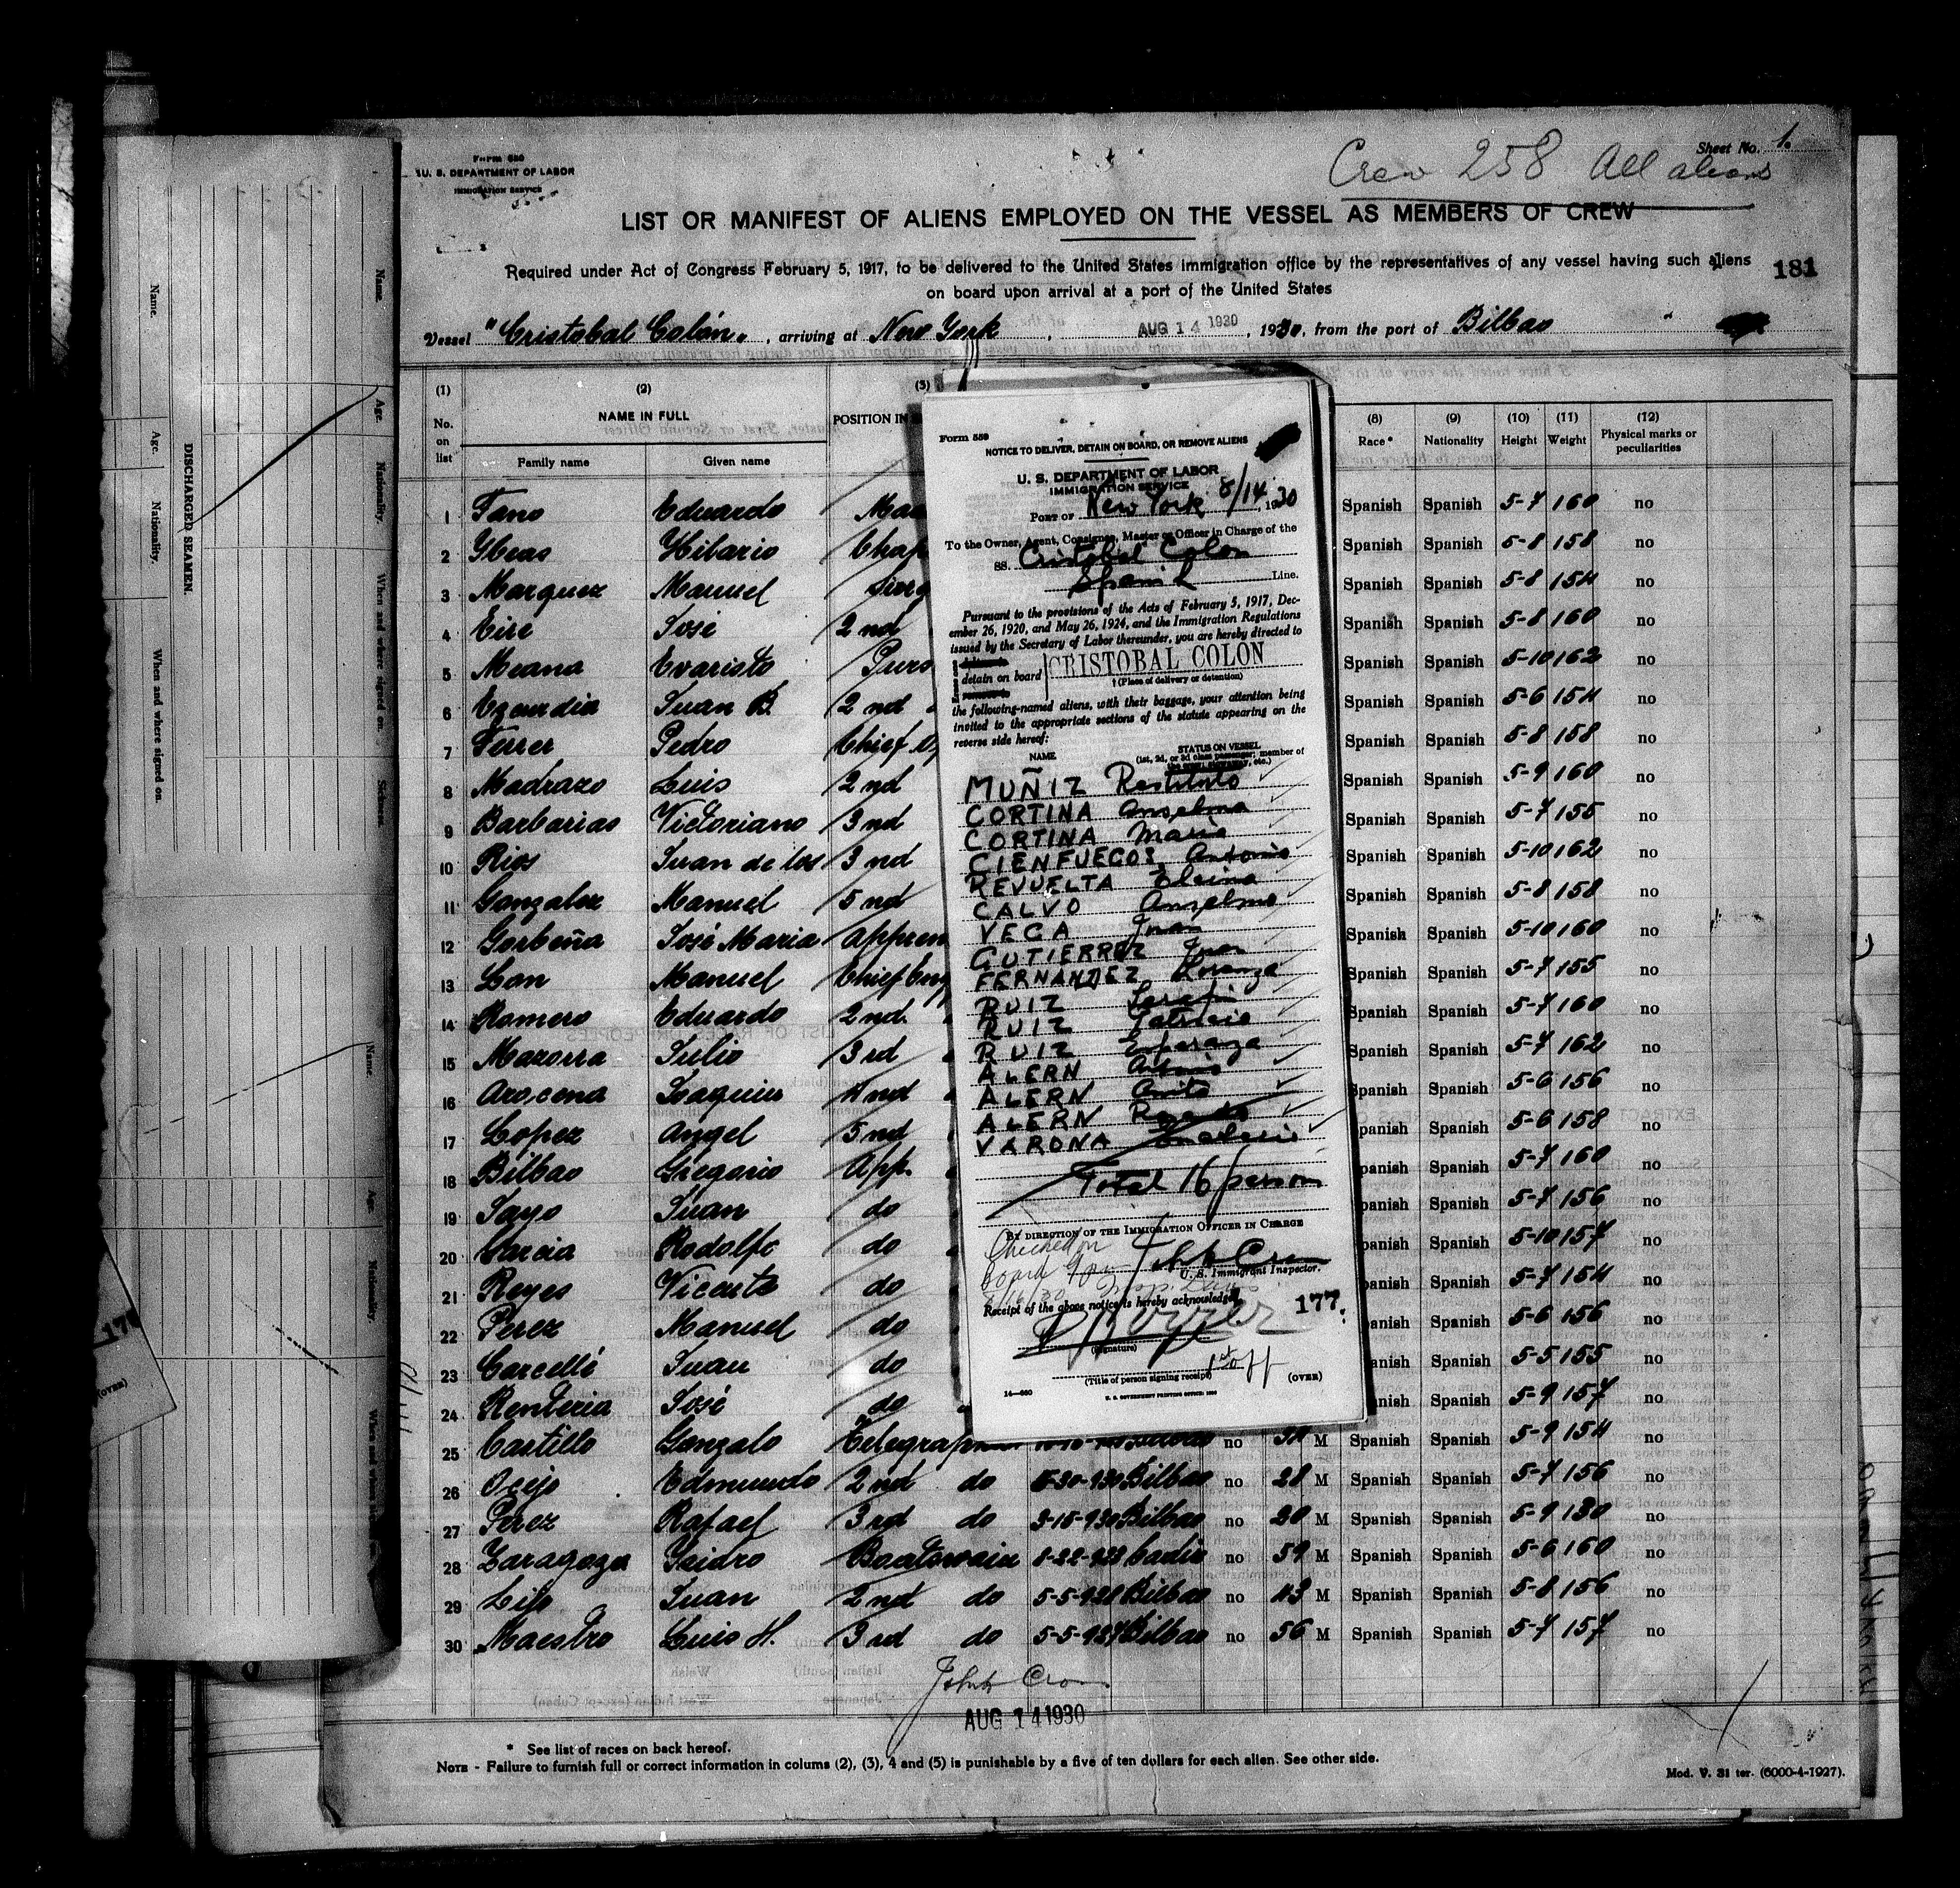 Form 680
U. S. DEPARTMENT OF LABOR
IMMIGRATION SERVICE
Sheet No. 1.
Crew 258 All aliens
LIST OR MANIFEST OF ALIENS EMPLOYED ON THE VESSEL AS MEMBERS OF CREW
Required under Act of Congress February 5, 1917, to be delivered to the United States immigration office by the representatives of any vessel having such aliens
on board upon arrival at a port of the United States
181
Vessel "Cristobal Colón", arriving at New York, AUG 14 1930, 1930, from the port of Bilbao
(1) (2) (3) (8) (9) (10) (11) (12)
No. on list NAME IN FULL POSITION IN Race* Nationality Height Weight Physical marks or peculiarities
Family name Given name
1 Fano Eduardo Spanish Spanish 5-7 160 no
2 Ybeas Hilario Chap Spanish Spanish 5-8 158 no
3 Marquez Manuel Surg Spanish Spanish 5-8 154 no
4 Eire José 2nd Spanish Spanish 5-8 160 no
5 Meana Evaristo Purs Spanish Spanish 5-10 162 no
6 Egaurdia Juan B. 2nd Spanish Spanish 5-6 154 no
7 Ferrer Pedro Chief Spanish Spanish 5-8 158 no
8 Madrazo Luis 2nd Spanish Spanish 5-9 160 no
9 Barbarias Victoriano 3nd Spanish Spanish 5-7 155 no
10 Rios Juan de los 3nd Spanish Spanish 5-10 162 no
11 Gonzalez Manuel 5nd Spanish Spanish 5-8 158 no
12 Gorbeña José Maria Appren Spanish Spanish 5-10 160 no
13 Lan Manuel Chief Eng Spanish Spanish 5-7 155 no
14 Romero Eduardo 2nd Spanish Spanish 5-7 160 no
15 Mazorra Julio 3rd Spanish Spanish 5-7 162 no
16 Arocena Joaquin 4nd Spanish Spanish 5-6 156 no
17 Lopez Angel 5nd panish Spanish 5-6 158 no
18 Bilbao Gregorio App. panish Spanish 5-7 160 no
19 Sayo Juan do panish Spanish 5-7 156 no
20 Garcia Rodolfo do panish Spanish 5-10 157 no
21 Reyes Vicente do panish Spanish 5-7 154 no
22 Perez Manuel do anish Spanish 5-6 156 no
23 Carcellé Juan do anish Spanish 5-5 155 no
24 Renteria José do anish Spanish 5-9 157 no
25 Castillo Gonzalo Telegraph no M Spanish Spanish 5-9 154 no
26 Ocejo Edmundo 2nd do Bilbao no 28 M Spanish Spanish 5-7 156 no
27 Perez Rafael 3rd do 3-18-930 Bilbao no 20 M Spanish Spanish 5-9 130 no
28 Zaragoza Isidro Boatswain 8-22-928 Cadiz no 59 M Spanish Spanish 5-6 160 no
29 Lijo Juan 2nd do 5-5-928 Bilbao no 43 M Spanish Spanish 5-8 156 no
30 Maestro Luis H. 3rd do 5-5-927 Bilbao no 56 M Spanish Spanish 5-7 157 no
AUG 14 1930
* See list of races on back hereof.
NOTE - Failure to furnish full or correct information in colums (2), (3), 4 and (5) is punishable by a five of ten dollars for each alien. See other side.
Mod. V. 31 ter. (6000-4-1927).
Form 559
NOTICE TO DELIVER, DETAIN ON BOARD, OR REMOVE ALIENS
U. S. DEPARTMENT OF LABOR
IMMIGRATION SERVICE
PORT OF New York 8/14, 1930
To the Owner, Agent, Consignee, Master or Officer in Charge of the
SS. Cristobal Colon
Spanish Line.
Pursuant to the provisions of the Acts of February 5, 1917, Dec-
ember 26, 1920, and May 26, 1924, and the Immigration Regulations
issued by the Secretary of Labor thereunder, you are hereby directed to
detain on board CRISTOBAL COLON
† (Place of delivery or detention)
the following-named aliens, with their baggage, your attention being
invited to the appropriate sections of the statute appearing on the
reverse side hereof:
NAME STATUS ON VESSEL
(1st, 2d, or 3d class passenger; member of
the crew; etc.)
MUÑIZ Restituto
CORTINA Anselma
CORTINA Maria
CIENFUEGOS Antonio
REVUELTA
CALVO Anselmo
VEGA Juan
GUTIERREZ Juan
FERNANDEZ Lorenza
RUIZ Serafin
RUIZ Patricio
RUIZ Esperanza
ALERN Antonio
ALERN Anita
ALERN
VARONA
Total 16 persons
BY DIRECTION OF THE IMMIGRATION OFFICER IN CHARGE
Checked on
board
8/16/30
U. S. Immigrant Inspector.
Receipt of the above notice is hereby acknowledged.
177.
(Signature)
1st off
(Title of person signing receipt)
(OVER)
14—680
U. S. GOVERNMENT PRINTING OFFICE: 1930
DISCHARGED SEAMEN.
Name.
Age.
Nationality.
When and where signed on.
Name.
Age.
Nationality.
When and where signed on.
Seaman.
Name
Age.
Nationality.
(OVER)